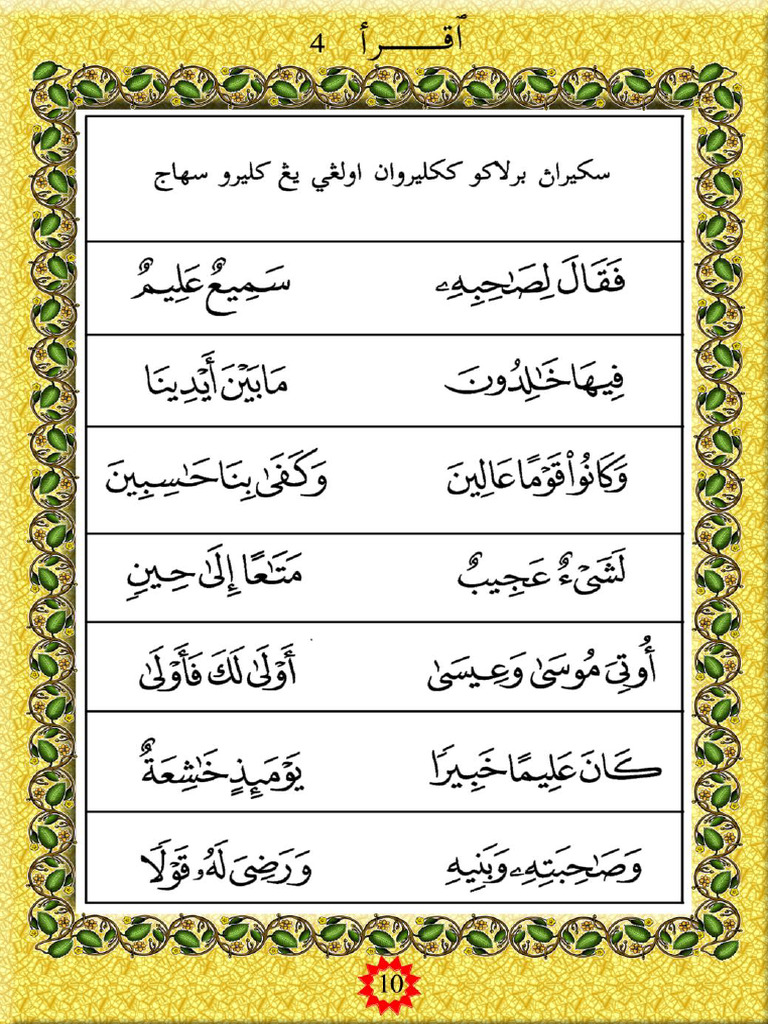 ٱقـــرأ 4
سكيراڽ برلاكو ككليروان اولڠي يڠ كليرو سهاج
فَقَالَ لِصَـٰحِبِهِۦ سَمِيعٌ عَلِيمٌ
فِيهَا خَـٰلِدُونَ مَا بَيْنَ أَيْدِينَا
وَكَانُوا۟ قَوْمًا عَالِينَ وَكَفَىٰ بِنَا حَـٰسِبِينَ
لَشَىْءٌ عَجِيبٌ مَتَـٰعًا إِلَىٰ حِينٍ
أُوتِىَ مُوسَىٰ وَعِيسَىٰ أَوْلَىٰ لَكَ فَأَوْلَىٰ
كَانَ عَلِيمًا خَبِيرًا يَوْمَئِذٍ خَـٰشِعَةٌ
وَصَـٰحِبَتِهِۦ وَبَنِيهِ وَرَضِىَ لَهُۥ قَوْلًا
10